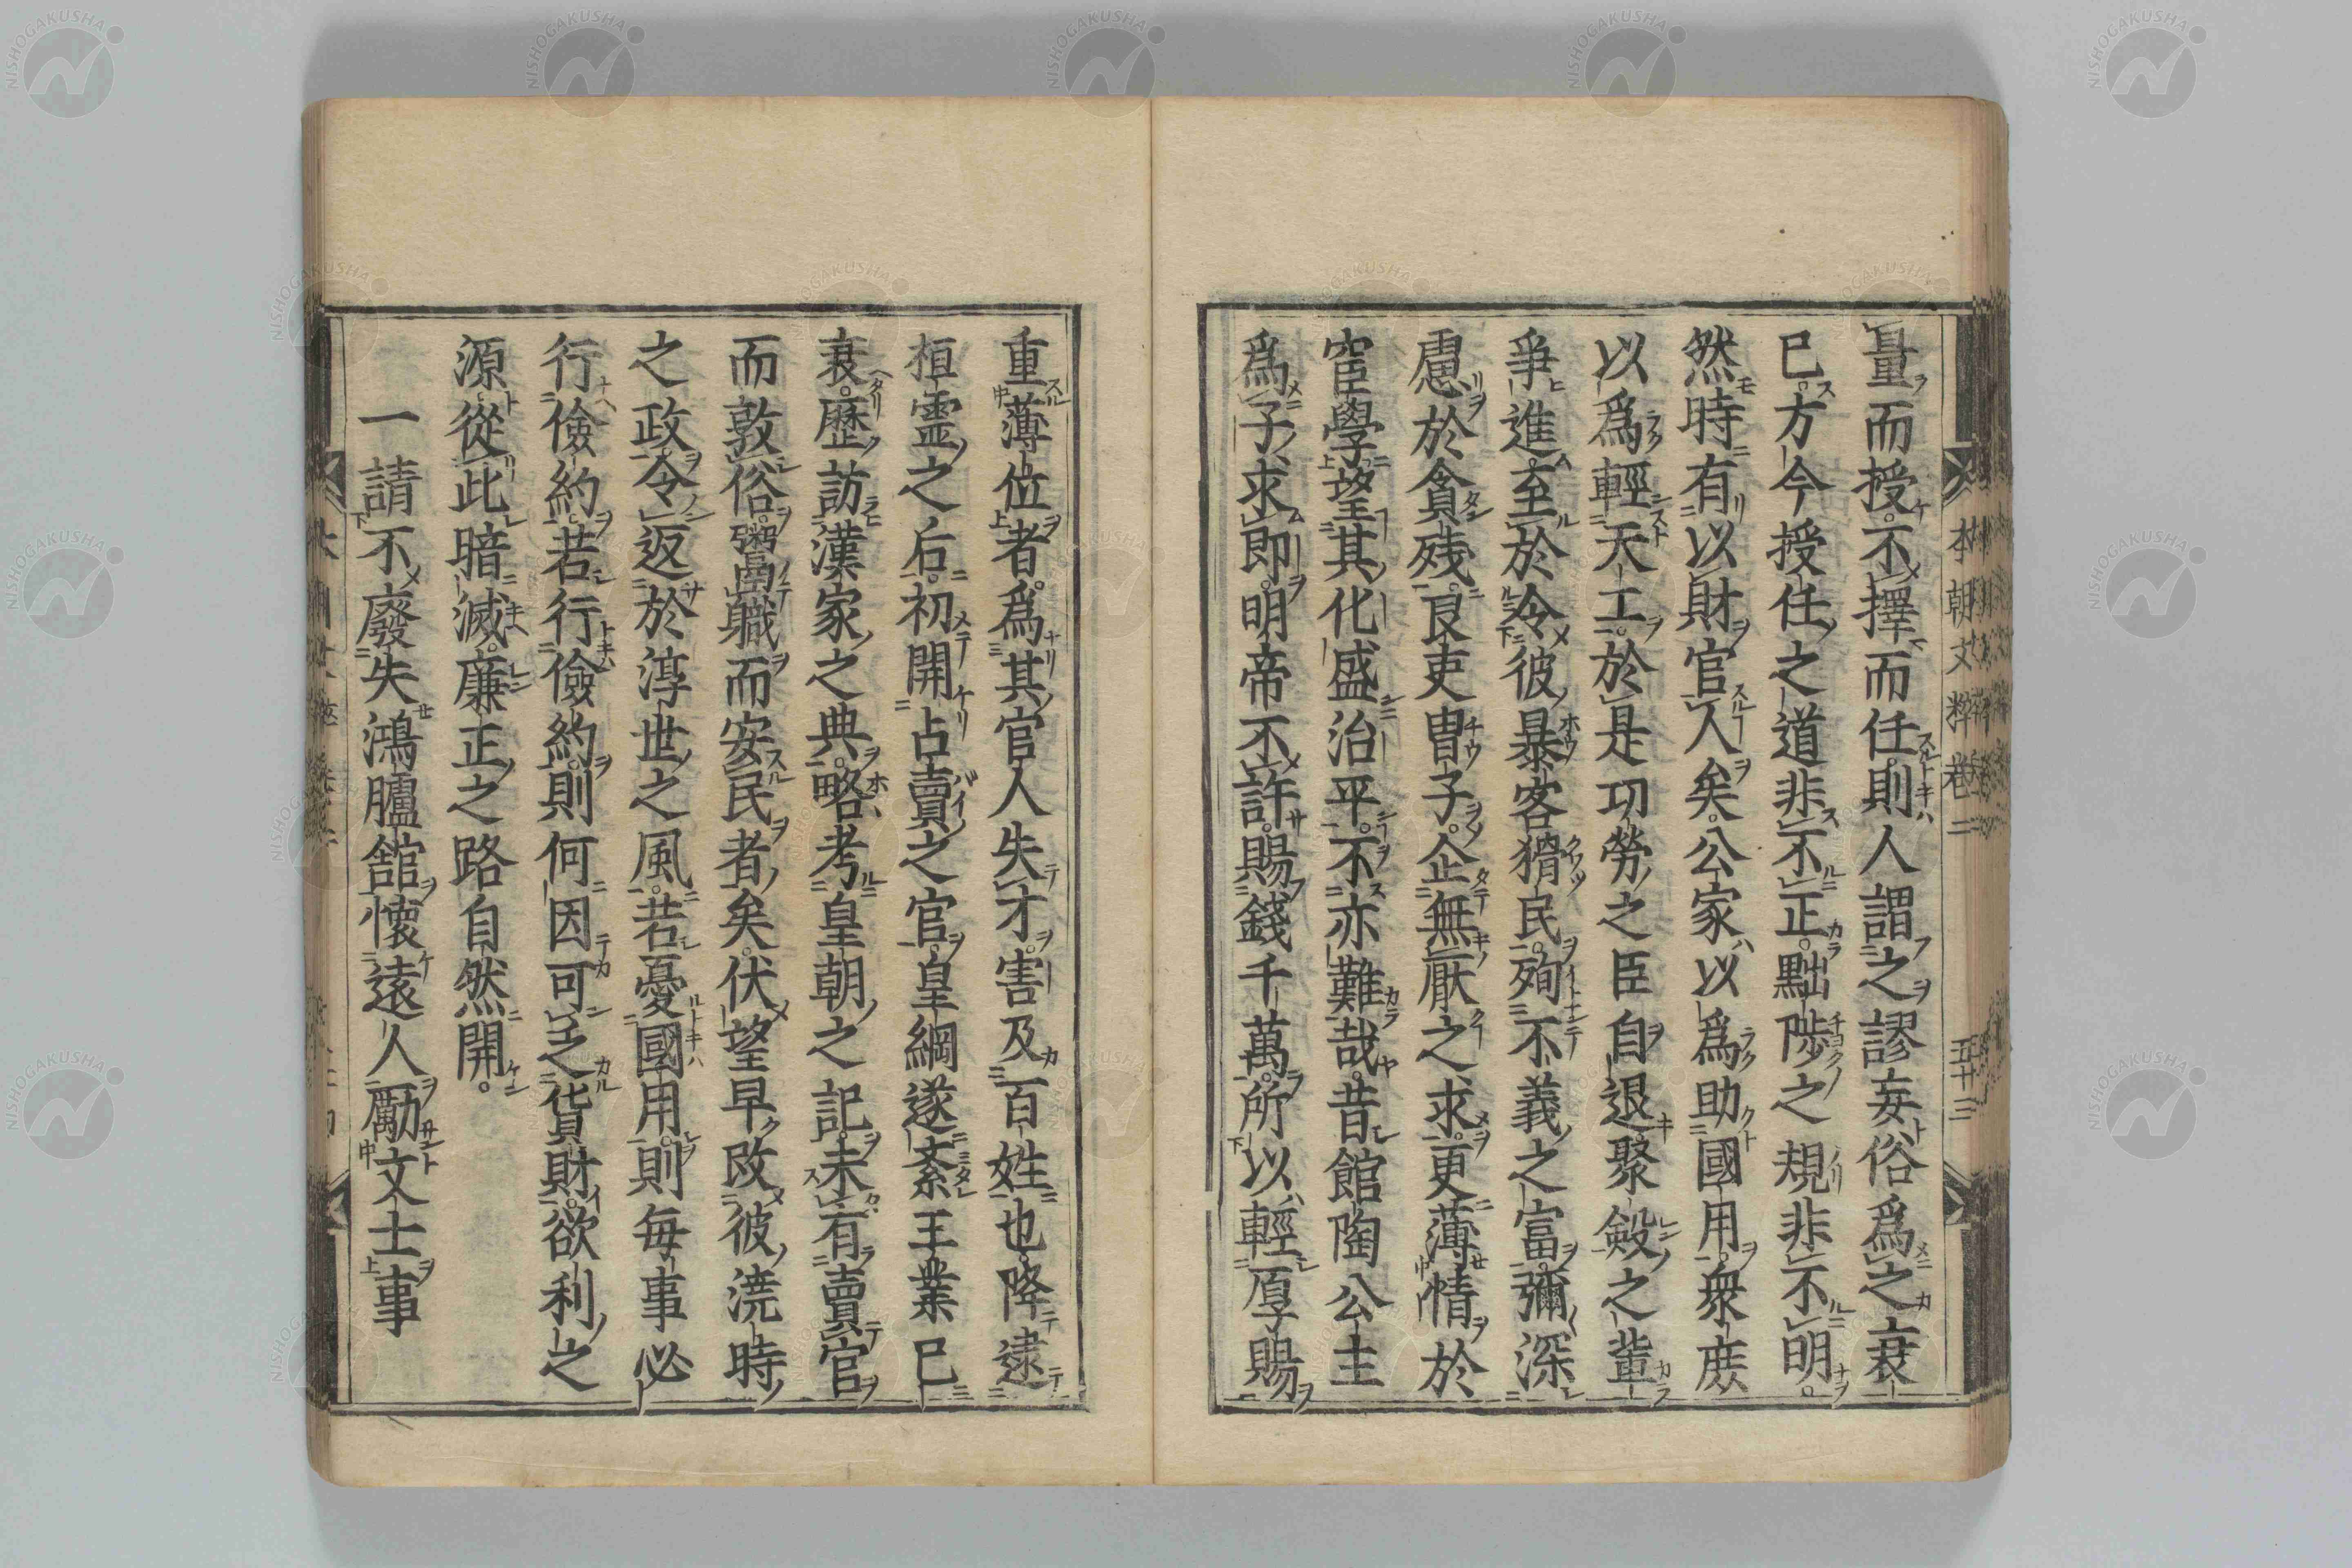 量而授。不擇而任。則人謂之謬妄俗爲之衰
已。方今授任之道非不正。黜陟之規非不明。
然時有以財官人矣。公家以爲助國用。衆庻
以爲輕天工。於是功勞之臣自退聚斂之輩
爭進至於令彼暴客猾民。殉不義之富。彌深
慮於貪殘。良吏冑子。企無厭之求。更薄情於
宦學望其化盛治平。不亦難哉。昔館陶公主
爲子求郎。明帝不許。賜錢千萬。所以輕厚賜
重薄位者。爲其官人失才。害及百姓也降逮
桓霊之后。初開占賣之官。皇綱遂紊王業已
衰。歷訪漢家之典。略考皇朝之記。未有賣官
而敦俗。鬻職而安民者矣。伏望早改彼澆時
之政令返於淳世之風。若憂國用。則毎事必
行儉約。若行儉約。則何因可乏貨財。欲利之
源從此暗滅。廉正之路自然開。
一請不廢失鴻臚舘懷遠人勵文士事
本朝文粹卷二
五十三